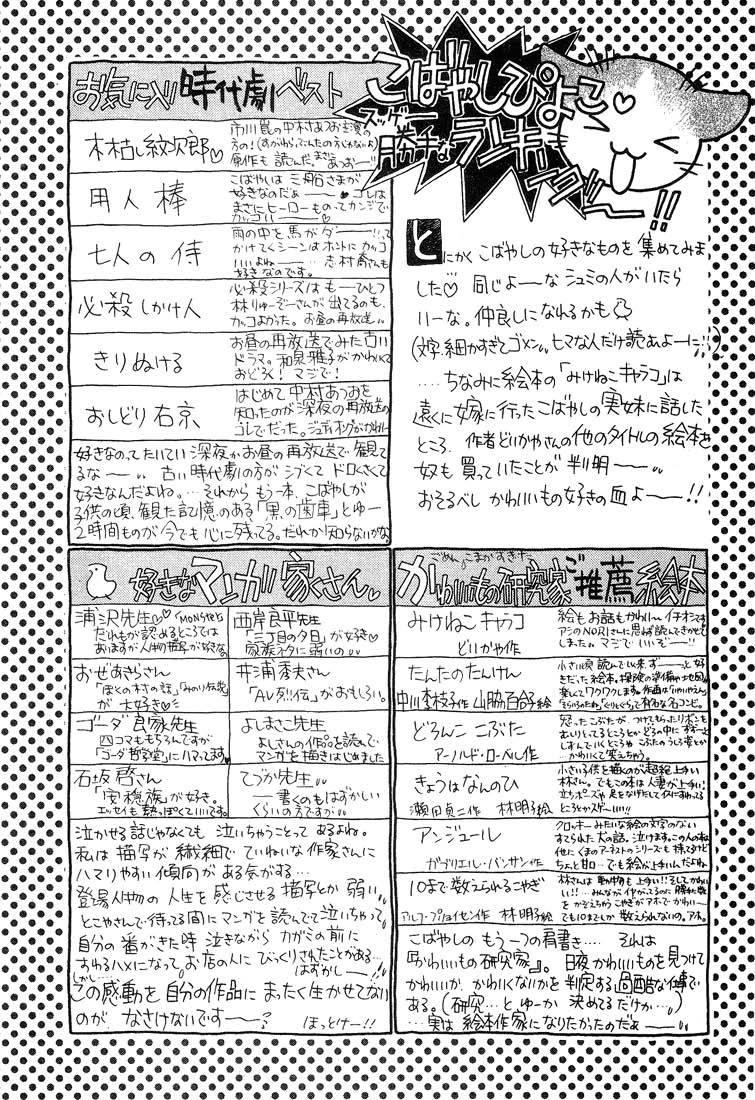 こばやしぴよこ♡
スッゲー
勝手な
ランキ
イグー!!
とにかく こばやしの好きなものを 集めてみま
した♡ 同じよーな シュミの人がいたら
いーな。仲良しになれるかも
(文字、細かすぎてゴメン。ヒマな人だけ読あよーに!!)
‥‥ちなみに絵本の「みけねこキャラコ」は
遠くに嫁に行ったこばやしの実妹に話した
ところ、作者どいかやさんの他のタイトルの絵本を
奴も買っていたことが判明——。
おそるべし かわいいもの好きの血よ——!!
お気に入り時代劇ベスト
木枯し紋次郎♡
市川崑の中村あつお主演の
方の!
原作も読んだ。
用人棒
こばやしは三船さまが
好きなのだぁ——♡コレは
まさにヒーローものってカンジで
カッコいー
七人の侍
雨の中を馬がダー!!って
かけてくシーンはホントにカッコ
いいよね——…志村喬さんも
好きなのです。
必殺しかけ人
必殺シリーズはもー ひとつ
林りゅーぞーさんが出てるのも、
カッコよかった。お昼の再放送
きりぬける
お昼の再放送でみた古い
ドラマ。和泉雅子がかわいくて
おどろく!マジで!
おしどり右京
はじめて中村あつおを
知ったのが深夜の再放送の
コレでだった。ジュディオングがかわいー
好きなのってたいてい深夜かお昼の再放送で観て
るな——。古い時代劇の方がシブくてドロくさくて
好きなんだよね。…それからもう一本、こばやしが
子供の頃、観た記憶のある「黒の歯車」とゆー
2時間ものが今でも心に残ってる。だれか知らないかな
好きなマンガ家くさん
浦沢先生♡
「MONSTER」
だれもが認めるところでは
ありますが人物描写が好きな。
西岸良平先生
「三丁目の夕日」が好き♡
家族ネタに弱いの
おぜあきらさん
「ぼくの村の話」「みのり伝説」
が大好き♡
井浦秀夫さん
「AV烈伝」がおもしろい。
ゴーダ良家先生
四コマももちろんですが
「ゴーダ哲学堂」にハマってます♡
よしまさこ先生
よしさんの作品を読んで
マンガを描きはじめました
石坂啓さん
「安穏族」が好き。
エッセイも熱っぽくていいです。
てづか先生
——書くのもはずかしい
くらいの方ですが
泣かせる話じゃなくても 泣いちゃうことって あるよね。
私は 描写が 繊細で ていねいな 作家さんに
ハマリやすい傾向が ある気がする…
登場人物の人生を感じさせる 描写とか 弱い
とこやさんで待ってる間に マンガを読んでて泣いちゃって
自分の番がきた時 泣きながら カガミの前に
すわるハメになって お店の人に びっくりされたことがある…
しかし… はずかしー!!
この感動を 自分の作品に まったく生かせてない
のが なさけないです——?
ほっとけー!!
ごめん、こまかすぎた
かわいもの研究家ご推薦絵本
みけねこ キャラコ
どいかや作
絵もお話もかわいー イチオシです
アシのNORIさんに思わず読んできかせて
しまった。マジで いいぞー!!
たんたのたんけん
中川李枝子作 山脇百合子絵
小さい頃読んでて以来 ずーっと好き
だった絵本。探険の準備や地図が
楽しくてワクワクします。
どろんこ こぶた
アーノルド・ローベル作
きょうはなんのひ
瀬田貞二作 林明子絵
小さい子供を描くのが超絶上手い
林さん。でもこの本は人妻が上手い!
アンジュール
ガブリエル・バンサン作
クロッキーみたいな絵の文字のない
すてられた犬の話。泣けます。この人の本は
他にくまのアーネストのシリーズも 持ってるけど
ちょと甘…でも絵が上手いんだよね
10まで数えられるこやぎ
アルフ・プリョイセン作 林明子絵
林さんは 動物も上手い!! そしてかわい
い!!
でも10までしか 数えられないの。アホ。
こばやしの もう一つの肩書き…… それは
『かわいいもの研究家』。 日夜 かわいいものを見つけて
かわいいか、かわいくないかを 判定する過酷な仕事で
ある。(研究…と ゆーか 決めてるだけか…)
…実は 絵本作家に なりたかったのだぁ——